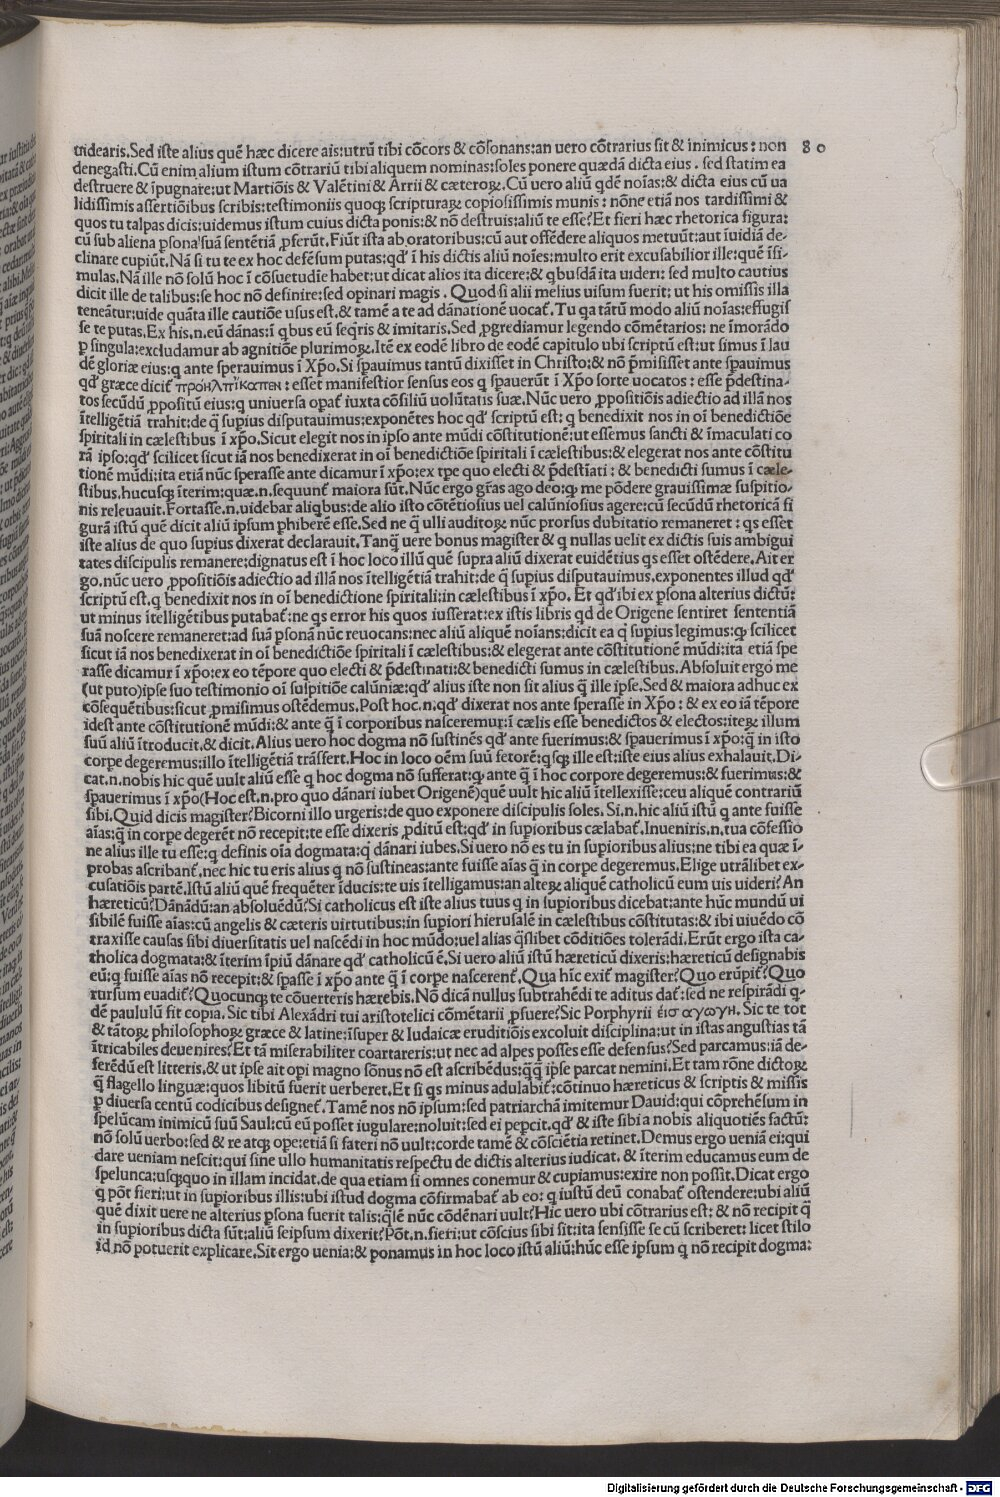 tridearis.Sed iste alius quē hæc dicere ais:utrū tibi cōcors & cōsonans:an uero cōtrarius sit & inimicus: non 80
denegasti.Cū enim alium istum cōtrariū tibi aliquem nominas:soles ponere quædā dicta eius. sed statim ea
destruere & īpugnare:ut Martiōis & Valētini & Arrii & cæteroꝝ.Cū uero aliū qdē noīas:& dicta eius cū ua
lidissimis assertiōibus scribis:testimoniis quoqꝫ scripturaꝝ copiosissimis munis: nōne etiā nos tardissimi &
quos tu talpas dicis:uidemus istum cuius dicta ponis:& nō destruis:aliū te esse?Et fieri hæc rhetorica figura:
cū sub aliena ꝑsona suā sentētiā ꝓferūt.Fiūt ista ab oratoribus:cū aut offēdere aliquos metuūt:aut īuidiā de-
clinare cupiūt.Nā si tu te ex hoc defēsum putas:qđ ī his dictis aliū noīes:multo erit excusabilior ille:quē īsi-
mulas.Nā ille nō solū hoc ī cōsuetudīe habet:ut dicat alios ita dicere:& qbusdā ita uideri: sed multo cautius
dicit ille de talibus:se hoc nō definire:sed opinari magis. Quod si alii melius uisum fuerit: ut his omissis illa
teneātur:uide quāta ille cautiōe usus est.& tamē a te ad dānationē uocat̄. Tu qa tātū modo aliū noīas:effugis
se te putas. Ex his.n.eū dānas:ī qbus eū seq̄ris & imitaris. Sed ꝓgrediamur legendo cōmētarios: ne īmorādo
ꝑ singula:excludamur ab agnitiōe plurimoꝝ.Itē ex eodē libro de eodē capitulo ubi scriptū est:ut simus ī lau
dē gloriæ eius:q ante sperauimus ī Xp̄o. Si spauimus tantū dixisset in Christo:& nō p̄misisset ante spauimus
qđ græce dicit̄ προηλπικοτεν: esset manifestior sensus eos q spauerūt ī Xp̄o sorte uocatos: esse p̄destina-
tos secūdū ꝓpositū eius:q uniuersa opat̄ iuxta cōsiliū uolūtatis suæ. Nūc uero ꝓpositiōis adiectio ad illā nos
ītelligētiā trahit:de q̄ supius disputauimus:exponētes hoc qđ scriptū est: q benedixit nos in oī benedictiōe
spiritali in cælestibus ī xp̄o.Sicut elegit nos in ipso ante mūdi cōstitutionē:ut essemus sancti & īmaculati co
rā ipso:qđ scilicet sicut iā nos benedixerat in oī benedictiōe spiritali ī cælestibus:& elegerat nos ante cōstitu
tionē mūdi:ita etiā nūc sperasse ante dicamur ī xp̄o:ex tp̄e quo electi & p̄destīati: & benedicti sumus ī cæle-
stibus.hucusqꝫ īterim:quæ.n.sequunt̄ maiora sūt. Nūc ergo gr̄as ago deo:ꝙ me pōdere grauissimæ suspitio-
nis releuauit.Fortasse.n.uidebar aliqbus:de alio isto cōtētiosius uel calūniosius agere:cū secūdū rhetoricā fi
gurā istū quē dicit aliū ipsum phiberē esse. Sed ne q̄ ulli auditoꝝ nūc prorsus dubitatio remaneret: qs esset
iste alius de quo supius dixerat declarauit.Tanq̄ uere bonus magister & q nullas uelit ex dictis suis ambigui
tates discipulis remanere:dignatus est ī hoc loco illū quē supra aliū dixerat euidētius qs esset ostēdere. Ait er
go.nūc uero ꝓpositiōis adiectio ad illā nos ītelligētiā trahit:de q̄ supius disputauimus.exponentes illud qđ
scriptū est.q benedixit nos in oī benedictione spiritali:in cælestibus ī xp̄o. Et qđ ibi ex ꝑsona alterius dictū:
ut minus ītelligētibus putabat̄:ne qs error his quos iusserat:ex istis libris qd de Origene sentiret sententiā
suā noscere remaneret:ad suā ꝑsonā nūc reuocans:nec aliū aliquē noīans:dicit ea q̄ supius legimus:ꝙ scilicet
sicut iā nos benedixerat in oī benedictiōe spiritali ī cælestibus:& elegerat ante cōstitutionē mūdi:ita etiā spe
rasse dicamur ī xp̄o:ex eo tēpore quo electi & p̄destinati:& benedicti sumus in cælestibus.Absoluit ergo me
(ut puto)ipse suo testimonio oī suspitiōe calūniæ:qđ alius iste non sit alius q̄ ille ipse. Sed & maiora adhuc ex
cōsequētibus:sicut ꝓmisimus ostēdemus.Post hoc.n.qđ dixerat nos ante sperasse in Xp̄o: & ex eo iā tēpore
idest ante cōstitutionē mūdi:& ante q̄ ī corporibus nasceremur:ī cælis esse benedictos & electos:iteꝝ illum
suū aliū ītroducit.& dicit.Alius uero hoc dogma nō sustinēs qđ ante fuerimus:& spauerimus ī xp̄o:q̄ in isto
corpe degeremus:illo ītelligētiā trāsfert.Hoc in loco oēm suū fetorē:qsqꝫ ille est:iste eius alius exhalauit.Di-
cat.n.nobis hic quē uult aliū esse q hoc dogma nō sufferat:ꝙ ante q̄ ī hoc corpore degeremus:& fuerimus:&
spauerimus ī xp̄o(Hoc est.n.pro quo dānari iubet Origenē)quē uult hic aliū ītellexisse:ceu aliquē contrariū
sibi.Quid dicis magister?Bicorni illo urgeris:de quo exponere discipulis soles. Si.n.hic aliū istū q ante fuisse
aīas:q̄ in corpe degerēt nō recepit:te esse dixeris ꝓditū est:qđ in supioribus cælabat̄. Inueniris.n.tua cōfessio
ne alius ille tu esse:q definis oīa dogmata:q̄ dānari iubes. Si uero nō es tu in supioribus alius:ne tibi ea quæ ī-
probas ascribant̄.nec hic tu eris alius q nō sustineas:ante fuisse aīas q̄ in corpe degeremus.Elige utrālibet ex-
cusatiōis partē.Istū aliū quē frequēter īducis:te uis ītelligamus:an alteꝝ aliquē catholicū eum uis uideri?An
hæreticū?Dānādū:an absoluēdū?Si catholicus est iste alius tuus q in supioribus dicebat:ante hūc mundū ui
sibilē fuisse aīas:cū angelis & cæteris uirtutibus:in supiori hierusalē in cælestibus cōstitutas:& ibi uiuēdo cō
traxisse causas sibi diuersitatis uel nascēdi in hoc mūdo:uel alias q̄slibet cōditiōes tolerādi.Erūt ergo ista ca-
tholica dogmata:& īterim īpiū dānare qđ catholicū ē. Si uero aliū istū hæreticū dixeris:hæreticū designabis
eū:q fuisse aīas nō recepit:& spasse ī xp̄o ante q̄ ī corpe nascerent̄.Qua hīc exit̄ magister?Quo erūpit̄?Quo
rursum euadit̄?Quocunqꝫ te cōuerteris hærebis. Nō dicā nullus subtrahēdi te aditus dat̄:sed ne respirādi q-
dē paululū sit copia. Sic tibi Alexādri tui aristotelici cōmētarii ꝓsuere?Sic Porphyrii ἐισαγωγη. Sic te tot
& tātoꝝ philosophoꝝ græce & latine:īsuper & Iudaicæ eruditiōis excoluit disciplina:ut in istas angustias tā
ītricabiles deuenires?Et tā miserabiliter coartareris:ut nec ad alpes posses esse defensus?Sed parcamus:iā de-
ferēdū est litteris.& ut ipse ait opi magno sōnus nō est ascribēdus:q̄q̄ ip̄se parcat nemini.Et tam rōne dictoꝝ
q̄ flagello linguæ:quos libitū fuerit uerberet.Et si qs minus adulabit̄:cōtinuo hæreticus & scriptis & missis
ꝑ diuersa centū codicibus designet̄. Tamē nos nō ipsum:sed patriarchā imitemur Dauid:qui cōprehēsum in
spelūcam inimicū suū Saul:cū eū posset iugulare:noluit:sed ei pepcit.qđ & iste sibi a nobis aliquotiēs factū:
nō solū uerbo:sed & re atqꝫ ope:etiā si fateri nō uult:corde tamē & cōsciētia retinet.Demus ergo ueniā ei:qui
dare ueniam nescit:qui sine ullo humanitatis respectu de dictis alterius iudicat. & īterim educamus eum de
spelunca:usqꝫquo in illam incidat.de qua etiam si omnes conemur & cupiamus:exire non possit.Dicat ergo
q pōt fieri:ut in supioribus illis:ubi istud dogma cōfirmabat̄ ab eo: q iustū deū conabat̄ ostendere:ubi aliū
quē dixit uere ne alterius ꝑsona fuerit talis:q̄lē nūc cōdēnari uult?Hic uero ubi cōtrarius est: & nō recipit q̄
in supioribus dicta sūt:aliū seipsum dixerit?Pōt.n.fieri:ut cōscius sibi sit:ita sensisse se cū scriberet: licet stilo
id nō potuerit explicare.Sit ergo uenia:& ponamus in hoc loco istū aliū:hūc esse ipsum q nō recipit dogma:
Digitalisierung gefördert durch die Deutsche Forschungsgemeinschaft - DFG